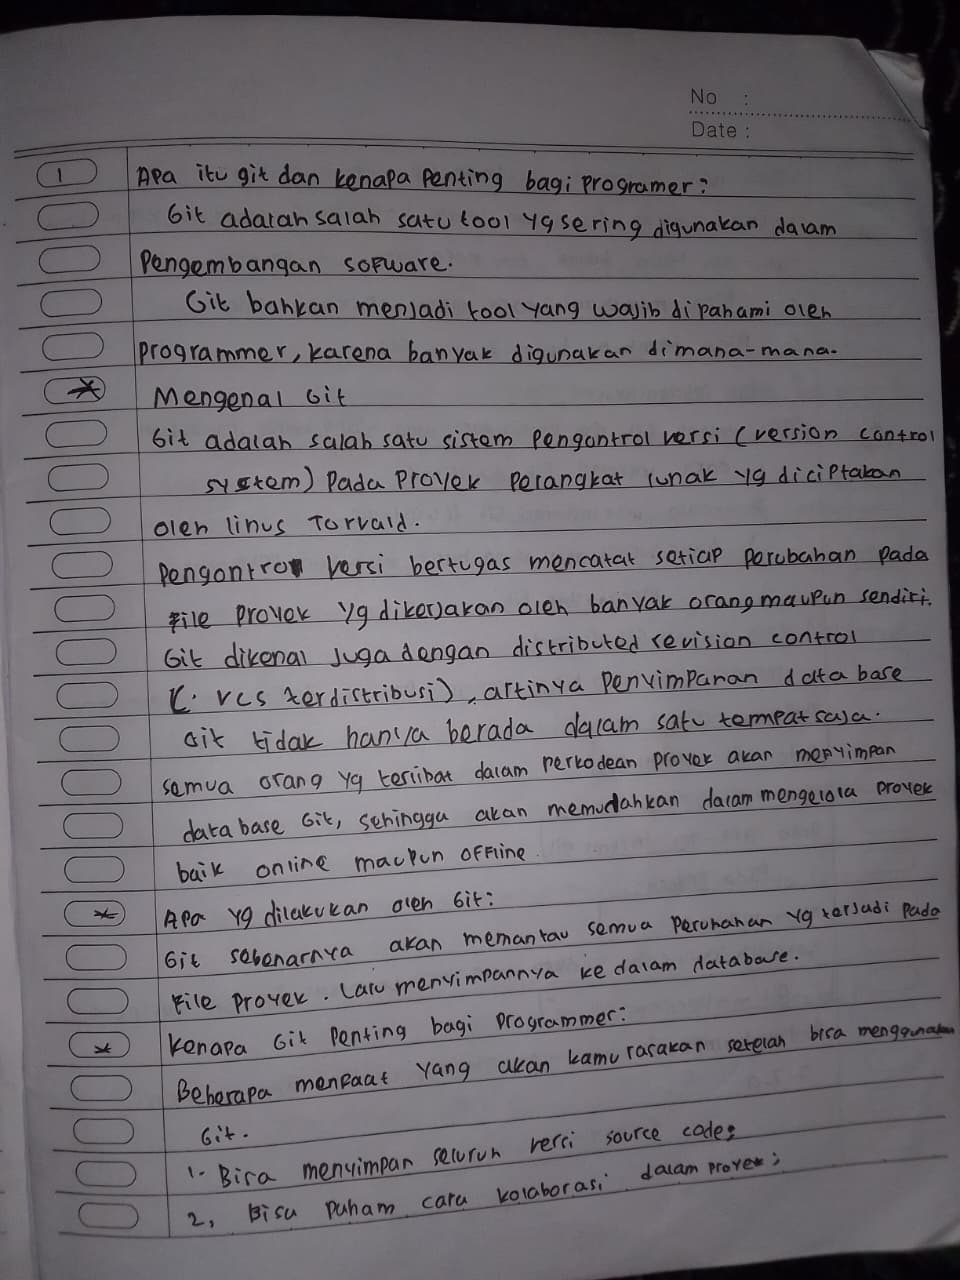 No :
Date :
1 Apa itu git dan kenapa penting bagi programer:
Git adalah salah satu tool yg sering digunakan dalam
pengembangan sofware.
Git bahkan menjadi tool yang wajib dipahami oleh
programmer, karena banyak digunakan dimana-mana.
* Mengenal Git
Git adalah salah satu sistem pengontrol versi (version control
system) pada proyek perangkat lunak yg diciptakan
oleh linus Torvald.
pengontrol versi bertugas mencatat setiap perubahan pada
file proyek yg dikerjakan oleh banyak orang maupun sendiri.
Git dikenal juga dengan distributed revision control
(. vcs terdistribusi), artinya penyimpanan database
Git tidak hanya berada dalam satu tempat saja.
semua orang yg terlibat dalam perkodean proyek akan menyimpan
database Git, sehingga akan memudahkan dalam mengelola proyek
baik online maupun offline
* Apa yg dilakukan oleh Git:
Git sebenarnya akan memantau semua perubahan yg terjadi pada
file proyek. Lalu menyimpannya ke dalam database.
* Kenapa Git penting bagi programmer:
Beberapa menfaat yang akan kamu rasakan setelah bisa menggunakan
Git.
1. Bisa menyimpan seluruh versi source code;
2, Bisa paham cara kolaborasi dalam proyek;